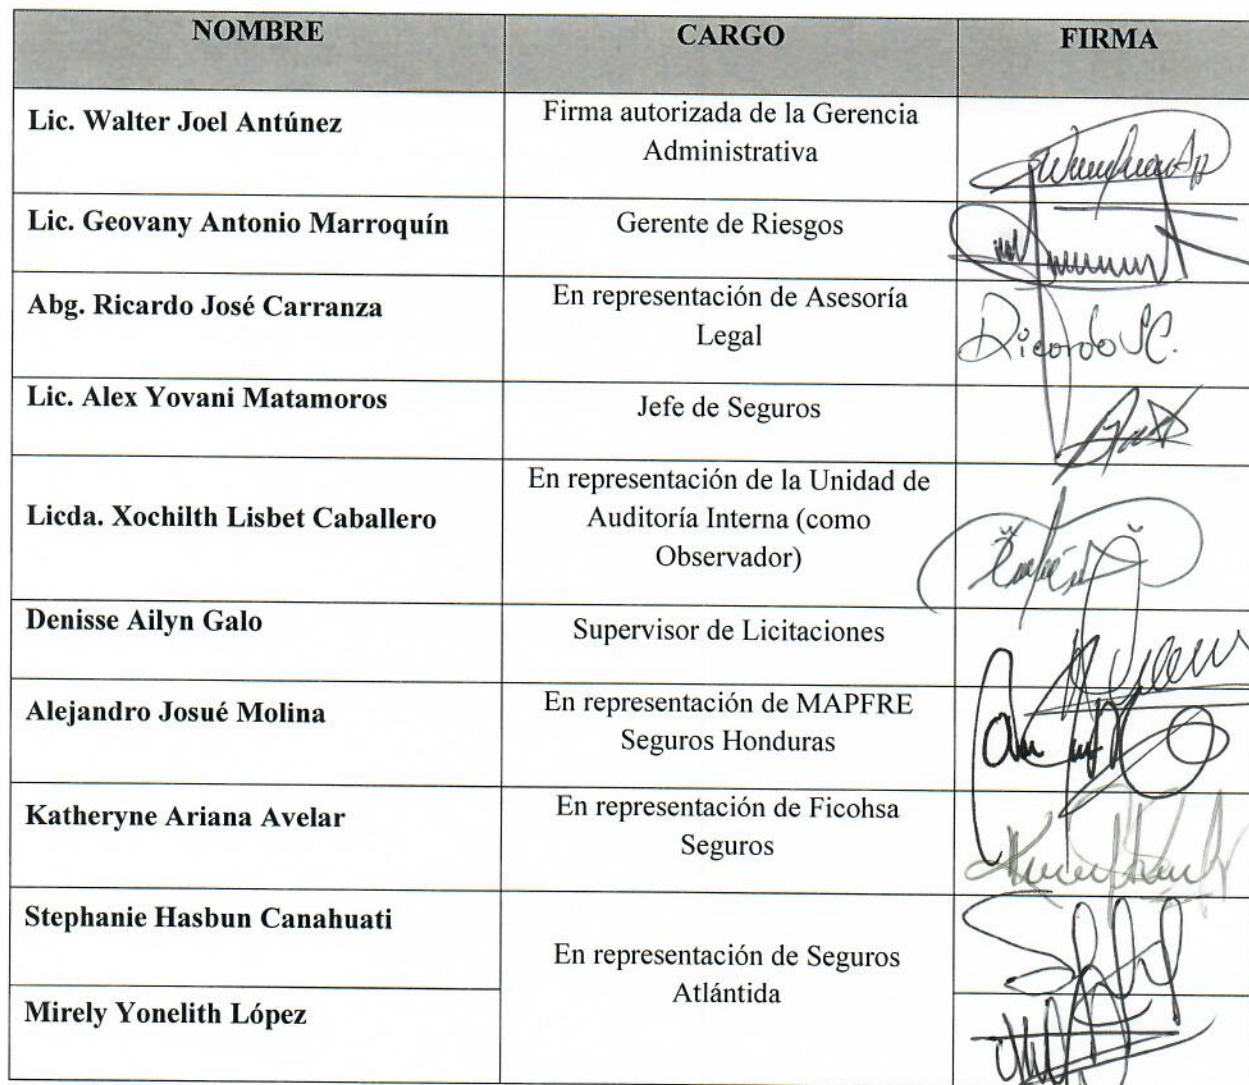 NOMBRE CARGO FIRMA
Lic. Walter Joel Antúnez
Firma autorizada de la Gerencia
Administrativa
Lic. Geovany Antonio Marroquín
Gerente de Riesgos
Abg. Ricardo José Carranza
En representación de Asesoría
Legal
Ricardo JC.
Lic. Alex Yovani Matamoros
Jefe de Seguros
Licda. Xochilth Lisbet Caballero
En representación de la Unidad de
Auditoría Interna (como
Observador)
Denisse Ailyn Galo
Supervisor de Licitaciones
Alejandro Josué Molina
En representación de MAPFRE
Seguros Honduras
Katheryne Ariana Avelar
En representación de Ficohsa
Seguros
Stephanie Hasbun Canahuati
Mirely Yonelith López
En representación de Seguros
Atlántida